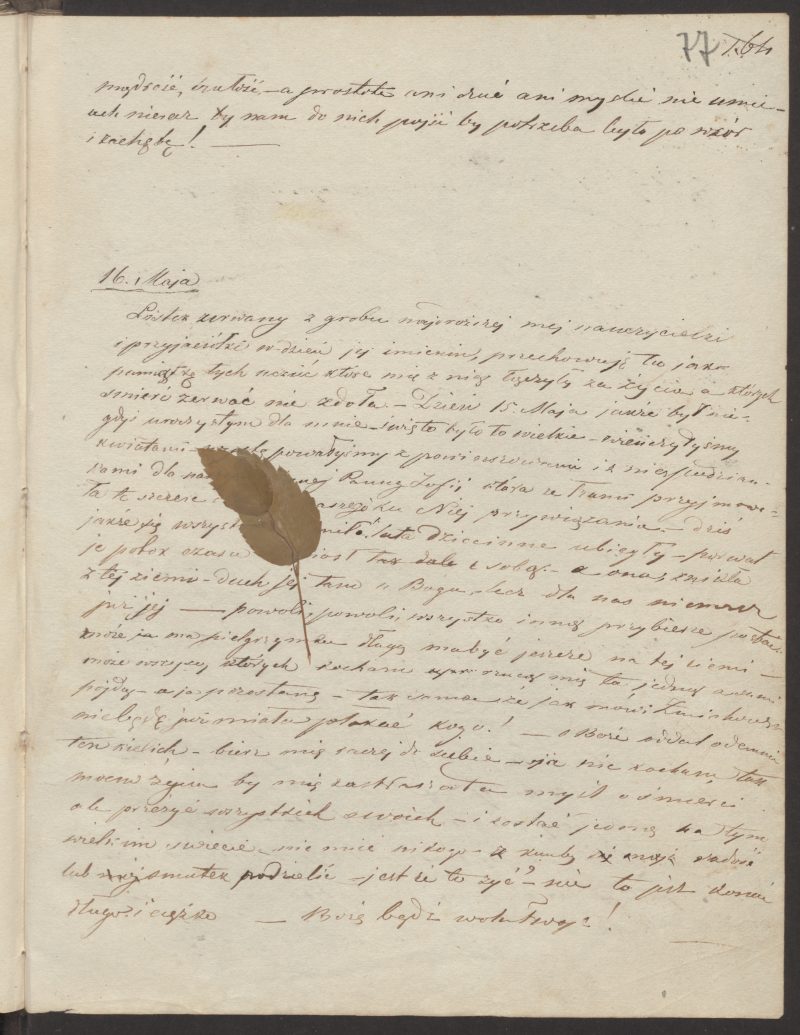 77 T. 64
mądrość, czułość, – a prostota ani czuć ani myśleć nie umie –
ach nieraz by nam do nich pójść by potrzeba było po wzór
i zachętę! —
16. Maja
Listek zerwany z grobu najdroższej mej nauczycielki
i przyjaciółki w dzień jej imienin, przechowuję tu jako
pamiątkę tych uczuć które mię z nią łączyły za życia a których
śmierć zerwać nie zdoła. – Dzień 15. Maja jakże był nie-
gdyś uroczystym dla mnie – święto było to wielkie – wieńczyłyśmy
kwiatami powinszowania i z niespodzian-
kami dla Panny Zofii, która ze łzami przyjmowa-
ła te szczere Niej przywiązania. – Dziś
jakże się wszystko lata dziecinne ubiegły – porwał
je potok czasu tak dale z sobą – a ona znikła
z tej ziemi – duch jej tam u Boga, lecz dla nas niemasz
już jej — powoli, powoli, wszystko inną przybierze postać
może ja ma pielgrzymka długą ma być jeszcze na tej ziemi –
może wszyscy których kocham rzucą mię tu jedną a sami
pójdą – a ja pozostanę – tak sama że jak mówi
niebędę już miała płakać kogo! — o Boże oddal odemnie
ten kielich – bierz mię raczej do siebie – ja nie kocham tak
mocno życia by mię zastraszała myśl o śmierci
ale przeżyć wszystkich swoich – i zostać jedną na tym
wielkim świecie – nie mieć nikogo – z kimby się moją radość
lub mój smutek podzielić – jest że to żyć? – nie to jest konać
długo i ciężko — Boże bądź wola Twoja!